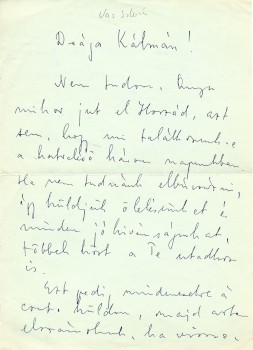 Vas István
Drága Kálmán!
Nem tudom, hogy
mikor jut el Hozzád, azt
sem, hogy mi találkozunk-e
a hátralevő három napunkban
Ha nem tudnánk elbúcsúzni,
így küldjük ölelésünket és
minden jókívánságunkat,
többek közt a Te utadhoz
is.
Ezt pedig mindenesetre
küldöm, majd
ha vissza-